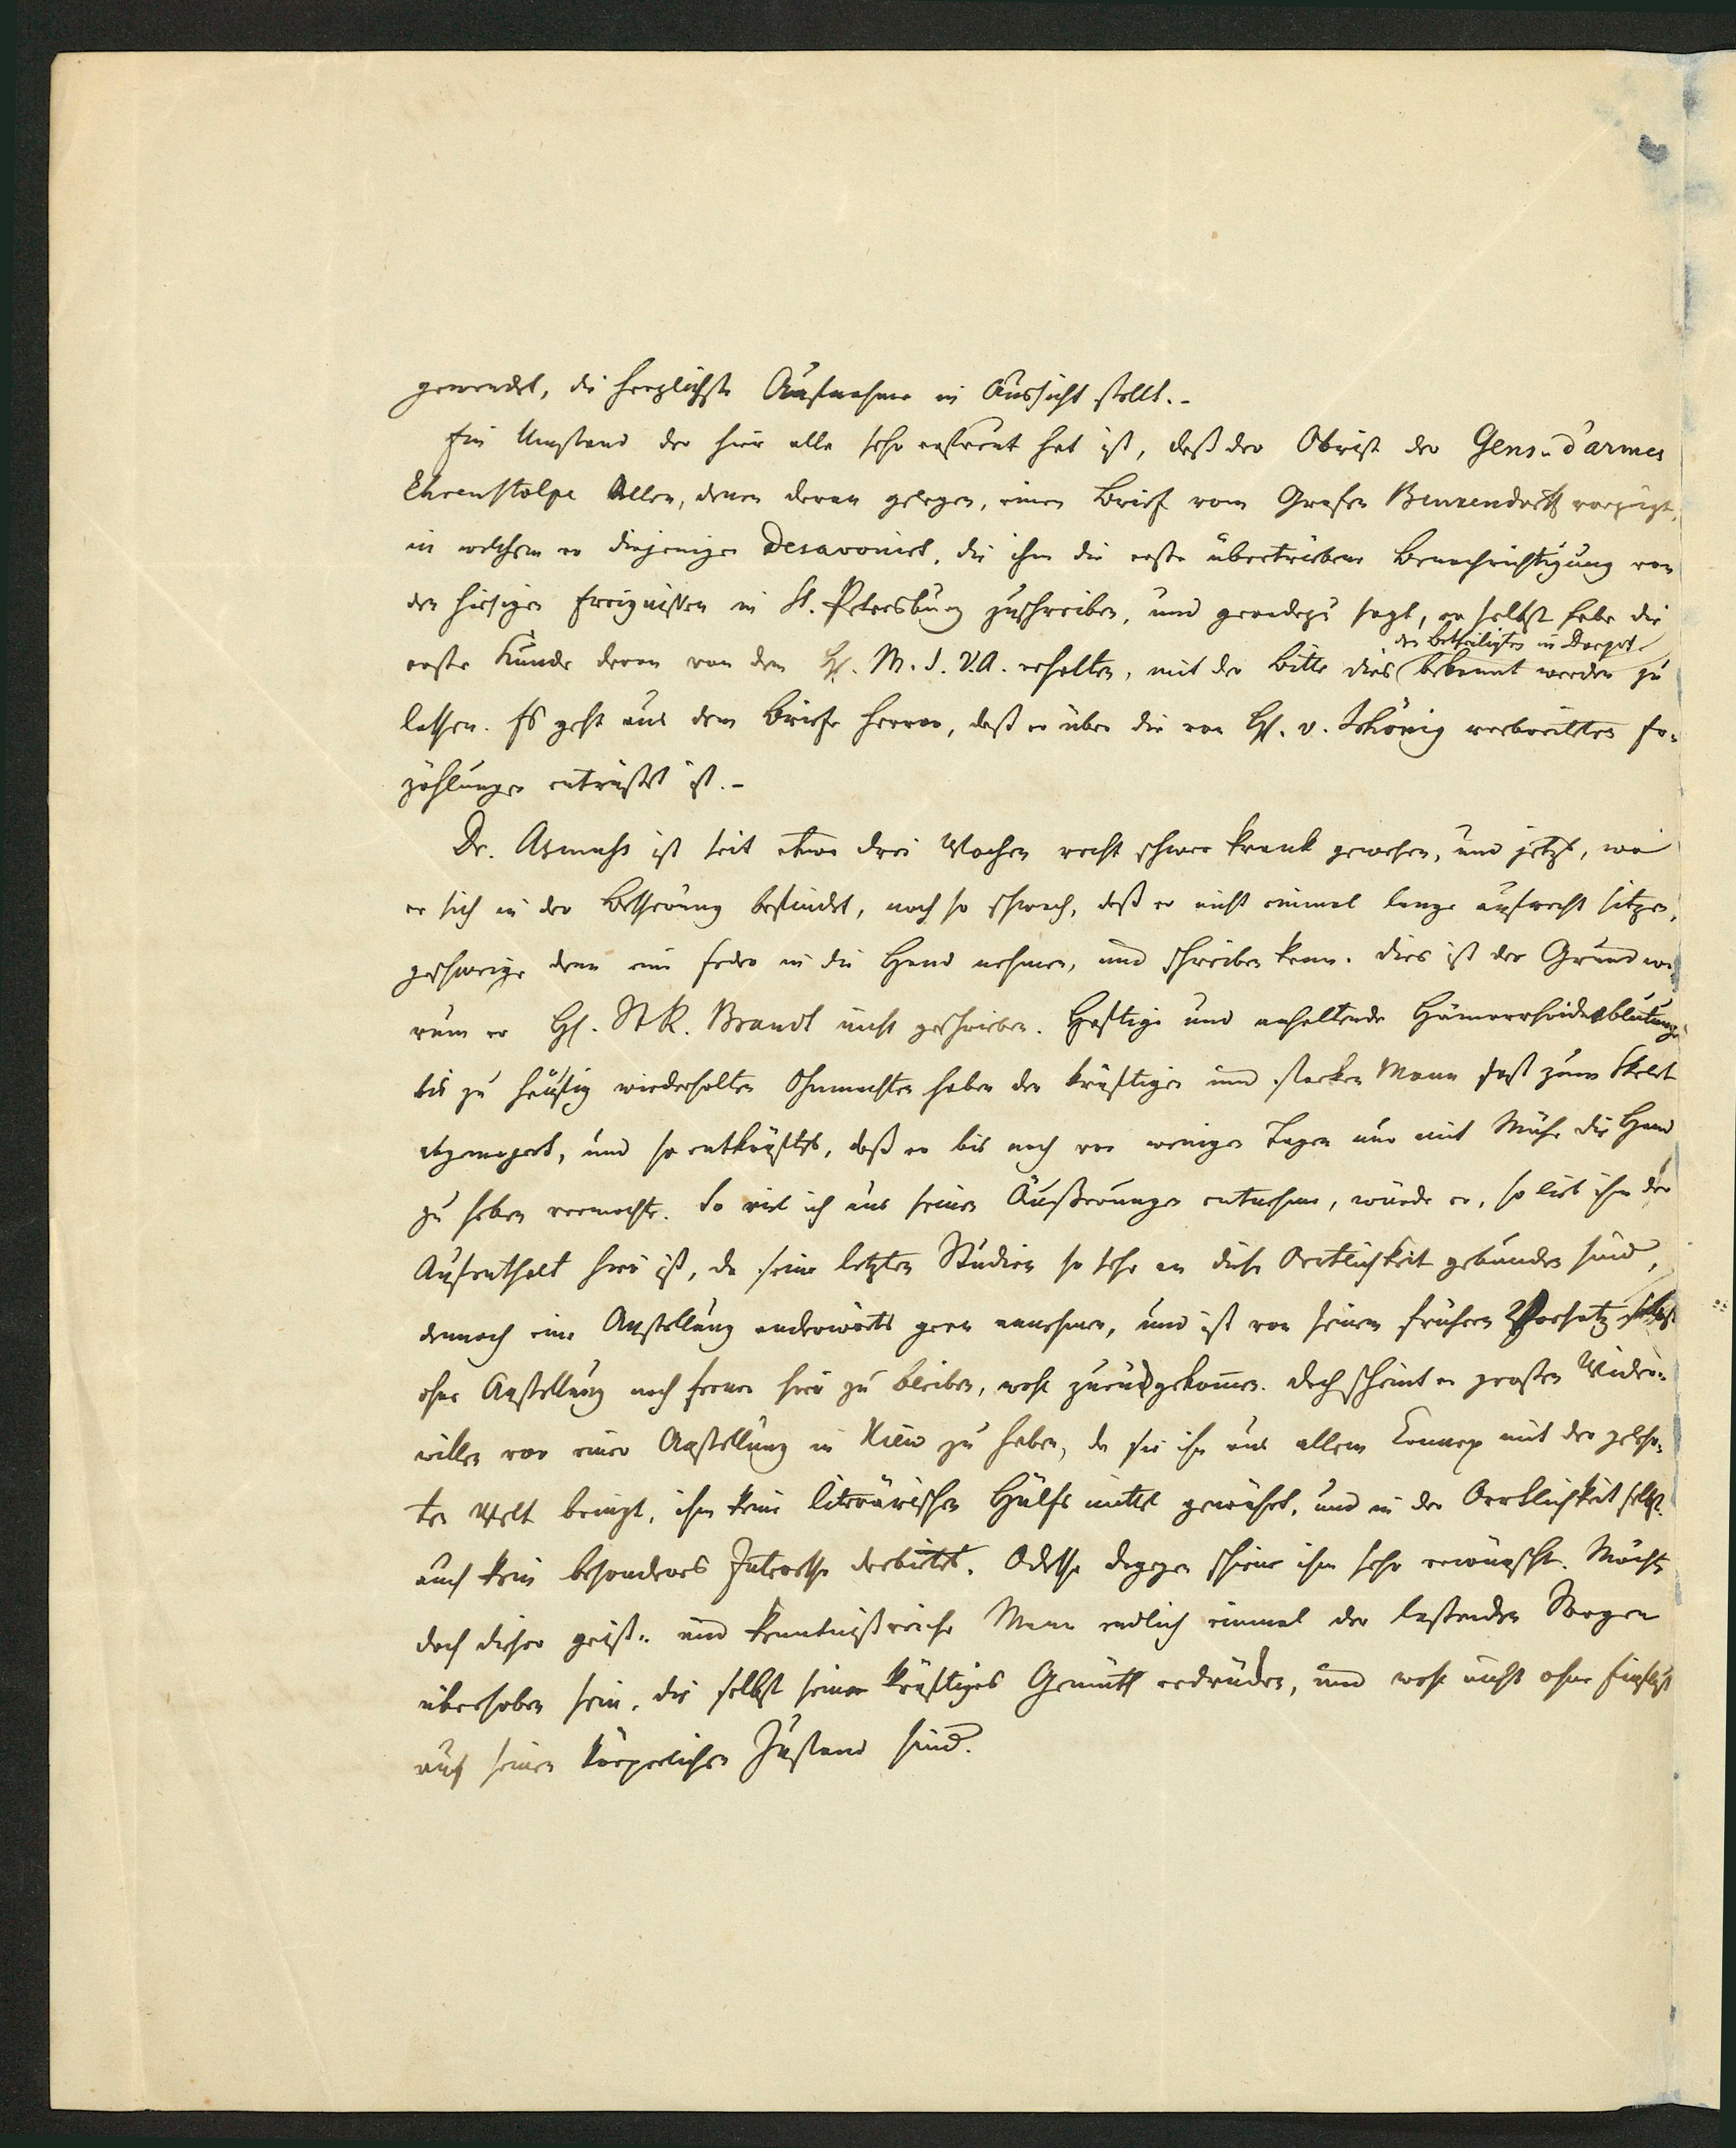 gewendet, die herzlichste Aufnahme in Aussicht stellt.-
Ein Umstand der hier alle sehr erfreut hat ist, daß der Obrist der Gens-d'armes
Ehrenstolpe Allen, denen daran gelegen, einen Brief vom Grafen Benkendorff vorzeigt,
in welchem er diejenigen desavouirt, die ihm die erste übertriebene Benachrichtigung von
den hiesigen Ereignissen in St. Petersburg zuschreiben, und geradezu sagt, er selbst habe die
den Betheiligten in Dorpat
erste Kunde davon von dem H. M. d. V.A. erhalten, mit der Bitte dies bekannt werden zu
lassen. Es geht aus dem Briefe hervor, daß er über die von H. v. Schönig verbreiteten Er-
zählungen entrüstet ist.-
Dr. Asmuss ist seit etwa drei Wochen recht schwer krank gewesen, und jetzt, wo
er sich in der Besserung befindet, noch so schwach, daß er nicht einmal lange aufrecht sitzen,
geschweige denn eine Feder in die Hand nehmen, und schreiben kann. Dies ist der Grund wa-
rum er H. St R. Brandt nicht geschrieben. Heftige und anhaltende Hämorrhoidalblutungen
bis zu häufig wiederholten Ohnmachten haben den kräftigen und starken Mann fast zum Skelet
abgemagert, und so entkräftet, daß er bis noch vor wenigen Tagen nur mit Mühe die Hand
zu heben vermochte. So viel ich aus seinen Äußerungen entnehme, würde er, so lieb ihm der
Aufenthalt hier ist, da seine letzten Studien so sehr an diese Oertlichkeit gebunden sind,
dennoch eine Anstellung anderwärts gern annehmen, und ist von seinem frühern Vorsatz selbst
ohne Anstellung noch ferner hier zu bleiben, wohl zurückgekommen. Doch scheint er großen Wider-
willen vor einer Anstellung in Kiew zu haben, da sie ihn aus allem Connex mit der gelehr-
ten Welt bringt, ihm keine literärischen Hülfsmittel gewährt, und in der Oertlichkeit selbst
auch kein besonderes Interesse darbietet. Odessa dagegen schiene ihm sehr erwünscht. Möchte
doch dieser geist- und kenntnißreiche Mann endlich einmal der lastenden Sorgen
überhoben sein, die selbst sein kräftiges Gemüth erdrücken, und wohl nicht ohne Einfluß
auf seinen körperlichen Zustand sind.